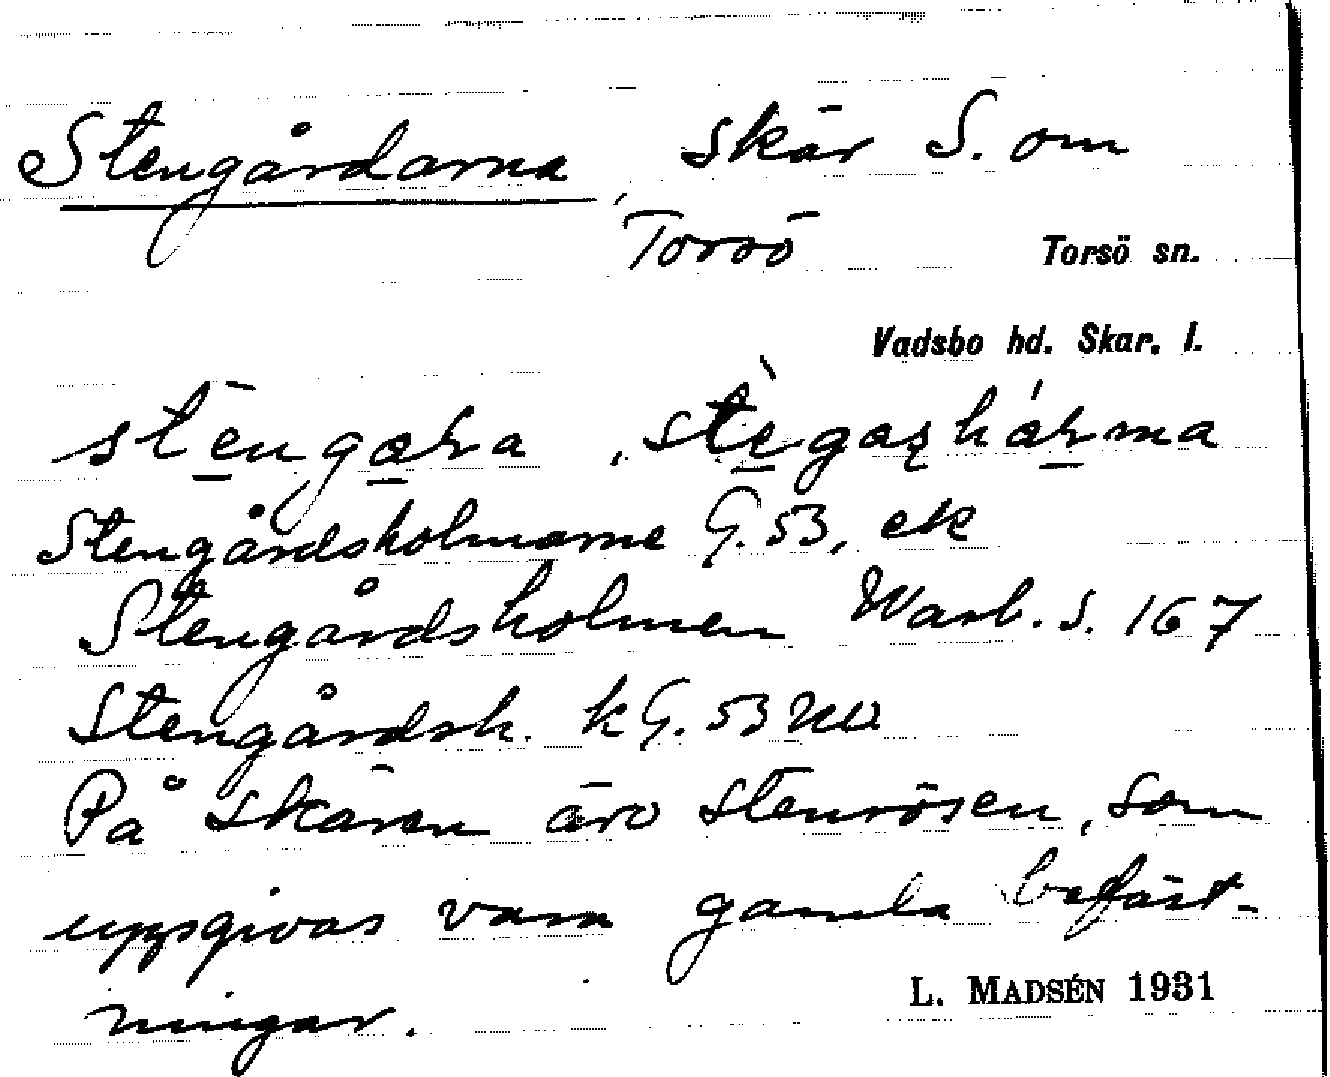 Stengårdarna, skär S. om
Torsö Torsö sn.
Vadsbo hd. Skar. l.
Stengårdsholmarne G. 53, ek
Stengårdsholmen Warb. s. 167
Stengårdsh. kG. 53 NO
På skären äro stenrösen, som
uppgivas vara gamla befäst-
ningar.
L. MADSÉN 1931